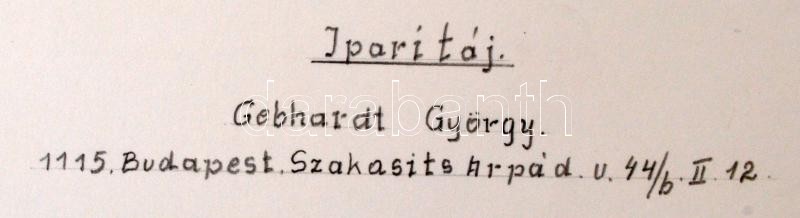 Ipari táj.
Gebhardt György.
darabanth
1115. Budapest. Szakasits Árpád. u. 44/b. II. 12.